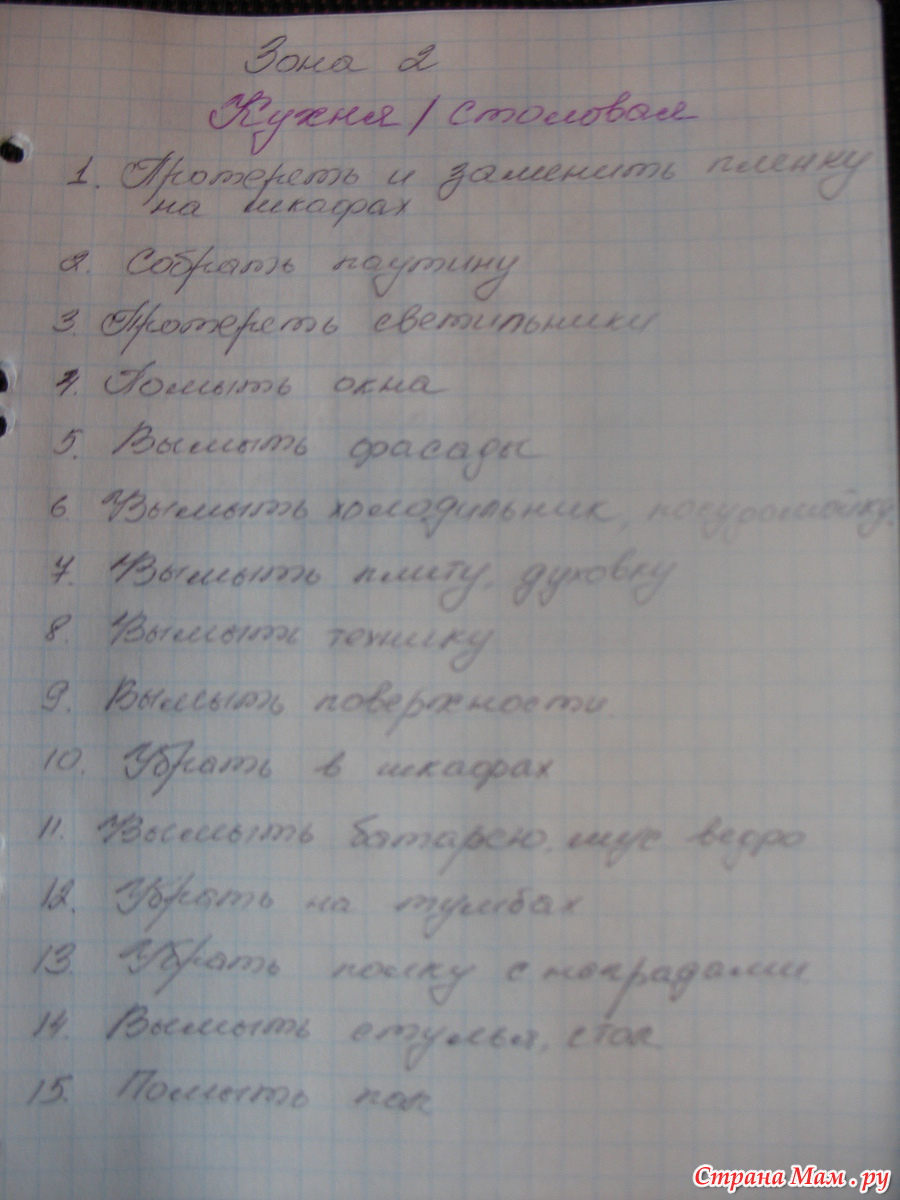 Зона 2
Кухня / столовая
1. Протереть и заменить пленку
на шкафах
2. Собрать паутину
3. Протереть светильники
4. Помыть окна
5. Вымыть фасады
6 Вымыть холодильник, посудомойку.
7. Вымыть плиту, духовку
8. Вымыть технику
9. Вымыть поверхности.
10. Убрать в шкафах
11. Вымыть батарею, мус ведро
12. Убрать на тумбах
13. Убрать полку с наградами
14. Вымыть стулья, стол
15. Помыть пол
Страна Мам.ру